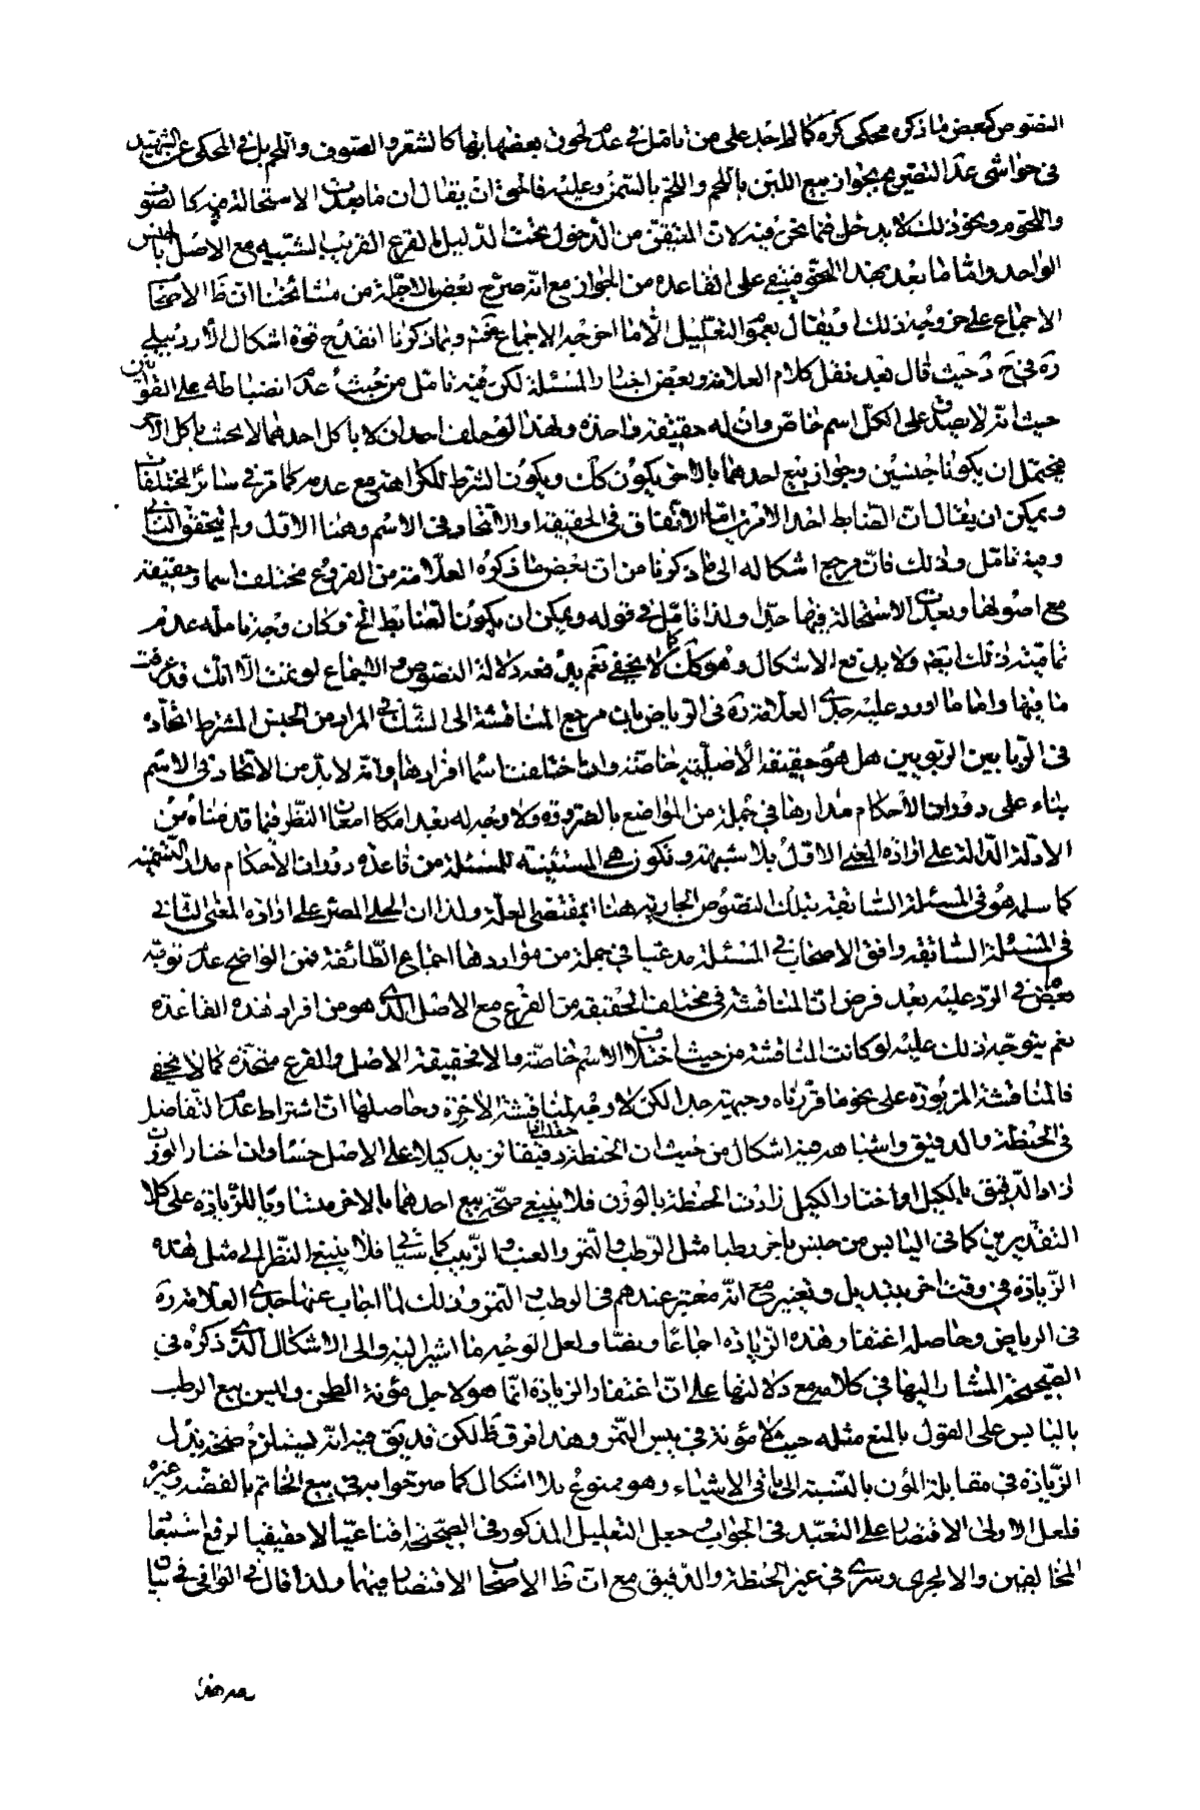 النصوص كبعض ما ذكره محكى كره كما لم اجد على من تامل في عدم لحوق بعضها بها كالشعر والصوف واللحم بل في المحكى عن الشهيد
في حواشى عد التصريح بجواز بيع اللبن باللحم واللحم بالسمن وعليه فالحق ان يقال ان ما بعدت الاستحالة فيه كالصوف
واللحم ونحو ذلك لا يدخل فيما نحن فيه لان المتيقن من الدخول تحت الدليل الفرع القريب الشبيه مع الاصل بالجنس
الواحد واما ما بعد بهذا النحو فيبقى على القاعدة من الجواز مع انه صرح بعض الاجلة من مشائخنا ان ظ الاصحاب
الاجماع على خروج ذلك او يقال بعموم التعليل الا ما اخرجه الاجماع فتم وبما ذكرنا انقدح قوة اشكال الاردبيلي
ره في ح د حيث قال بعد نقل كلام العلامة وبعض اخبار المسئلة لكن فيه تامل من حيث عدم انضباطه على القوانين
حيث انه لا يصدق على الكل اسم خاص وان له حقيقة واحدة ولهذا لو حلف احد ان لا ياكل احدهما لا يحنث باكل الاخر
فيحتمل ان يكونا جنسين وجواز بيع احدهما بالاخر يكون كك ويكون الشرط للكراهة مع عدمه كما مر في سائر المختلفات
ويمكن ان يقال ان الضابط احد الامرين اما الاتفاق في الحقيقة او الاتحاد في الاسم وهنا الاول ولم يتحقق الثاني
وفيه تامل وذلك فان مرجع اشكاله الى ما ذكرنا من ان بعض ما ذكره العلامة من الفروع مختلف اسما وحقيقة
مع اصولها وبعدت الاستحالة فيها جدا ولذا تامل في قوله ويمكن ان يكون الضابط الخ وكان وجه تامله عدم
تمامية ذلك ايضا ولا يدفع الاشكال وهو كك كما لا يخفى نعم يدفعه دلالة النصوص والاجماع لو تمت الا انك قد عرفت
ما فيها واما ما اورد عليه جدى العلامة ره في الرياض بان مرجع المناقشة الى الشك في المراد من الجنس المشترط اتحاده
في الربا بين الربويين هل هو حقيقة الاصلية خاصة وان اختلفت اسما افرادها وانه لا بد من الاتحاد في الاسم
بناء على دوران الاحكام مدارها في جملة من المواضع بالضرورة ولا وجه له بعد امكان امعان النظر فيما قدمناه من
الادلة الدالة على ارادة المعنى الاول بلا شبهة وتكون هى المستثنية للمسئلة من قاعدة دوران الاحكام مدار التسمية
كما سلمه هو في المسئلة السابقة بتلك النصوص الجارية هنا بمقتضى العلة ولذا ان الحلى المصر على ارادة المعنى الثانى
في المسئلة السابقة وافق الاصحاب في المسئلة مدعيا في جملة من مواردها اجماع الطائفة فمن الواضح عدم توجه
بعض في الرد عليه بعد فرض ان المناقشة في مختلف الحقيقة من الفرع مع الاصل الذي هو من افراد هذه القاعدة
نعم يتوجه ذلك عليه لو كانت المناقشة من حيث اختلاف الاسم خاصة والا فحقيقة الاصل والفرع متحدة كما لا يخفى
فالمناقشة المزبورة على نحو ما قررناه وجيهة جدا لكن لا وجه لمناقشة الاخرة وحاصلها ان اشتراط عدم التفاضل
في الحنطة والدقيق واشباهه فيه اشكال من حيث ان الحنطة دقيقا تزيد كيلا على الاصل حنسا وان اختار الوزن
زاد الدقيق بالكيل او اختار الكيل زادت الحنطة بالوزن فلا ينبغى صحة بيع احدهما بالاخر متساويا للزيادة على كلا
التقديرين كما في اليابس من جنس باخر رطبا مثل الرطب والتمر والعنب والزبيب كما سياتى فلا ينبغى النظر الى مثل هذه
الزيادة في وقت اخر بتبديل وتغيير مع انه معتبر عندهم في الرطب والتمر وذلك لما اجاب عنها جدى العلامة ره
في الرياض وحاصله اغتفار هذه الزيادة اجماعا ونصا ولعل الوجه ما اشير اليه والى الاشكال الذي ذكره في
الصحيحة المشار اليها في كلامه مع دلالتها على ان اغتفار الزيادة انما هو لاجل مؤنة الطحن وليس بيع الرطب
باليابس على القول بالمنع مثله حيث لا مؤنة في يبس التمر وهذا فرق ظ لكن قد يق فيه انه يستلزم صحة بذل
الزيادة في مقابلة المؤن بالنسبة الى باقى الاشياء وهو ممنوع بلا اشكال كما صرحوا به في بيع الخاتم بالفضة وغيره
فلعل الاولى الاقتصار على التعبد في الجواب وجعل التعليل المذكور في الصحيحة اقناعيا لا حقيقيا لرفع استبعاد
المخالفين والا لجرى وسرى في غير الحنطة والدقيق مع ان ظ الاصحاب الاقتصار فيهما ولذا قال في الوافى في بيان